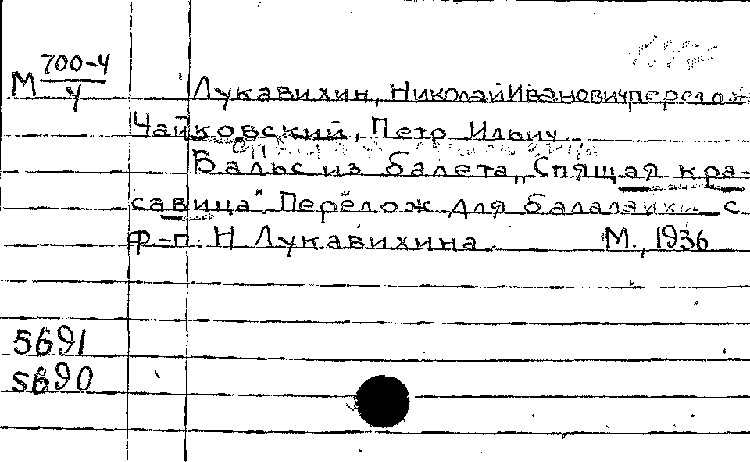 М 700-4/4
Лукавихин, Николай Иванович перелож.
Чайковский, Петр Ильич.
Вальс из балета „Спящая кра-
савица“. Перелож. для балалайки с
ф-п. Н. Лукавихина. М., 1936
5691
5690